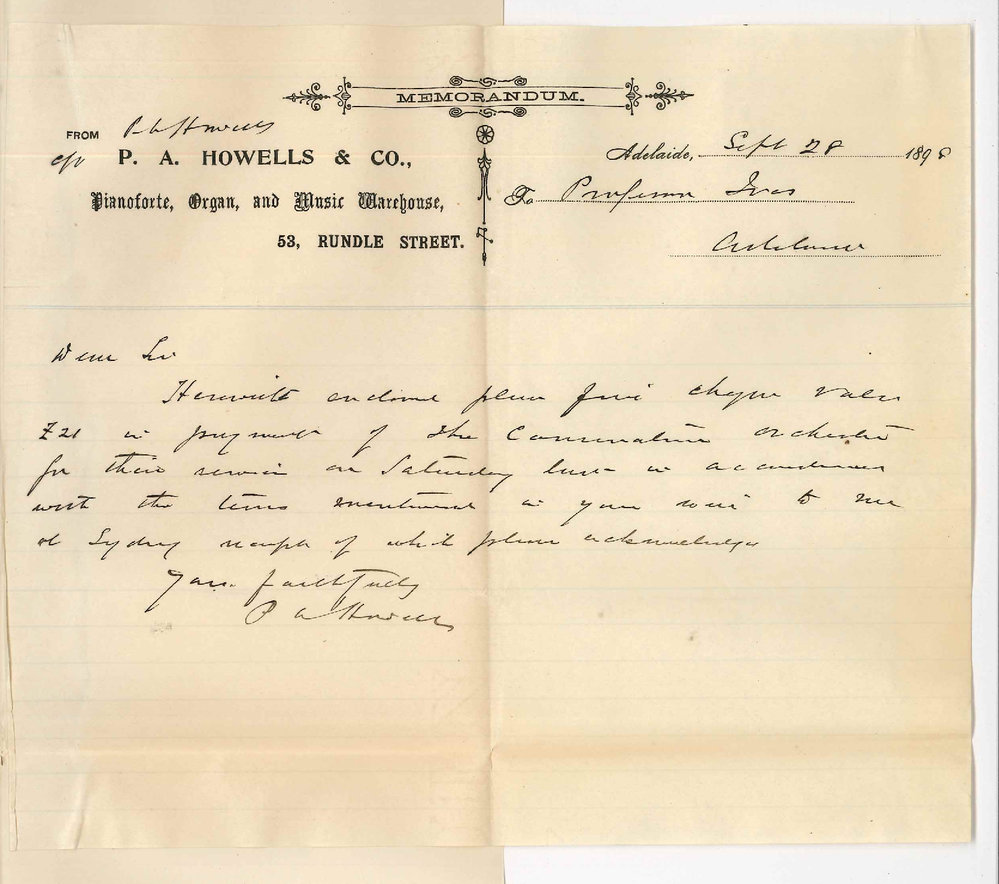 MEMORANDUM.
FROM P A Howells
c/o P. A. HOWELLS & CO.,
Pianoforte, Organ, and Music Warehouse,
53, RUNDLE STREET.
Adelaide, Sept 28 1898
To Professor Ives
Adelaide
Dear Sir
Herewith enclosed please find cheque value
£21 in payment of the Conservatoire Orchestra
for their services on Saturday last in accordance
with the terms mentioned in your wire to me
at Sydney receipt of which please acknowledge
Yours faithfully
P A Howells